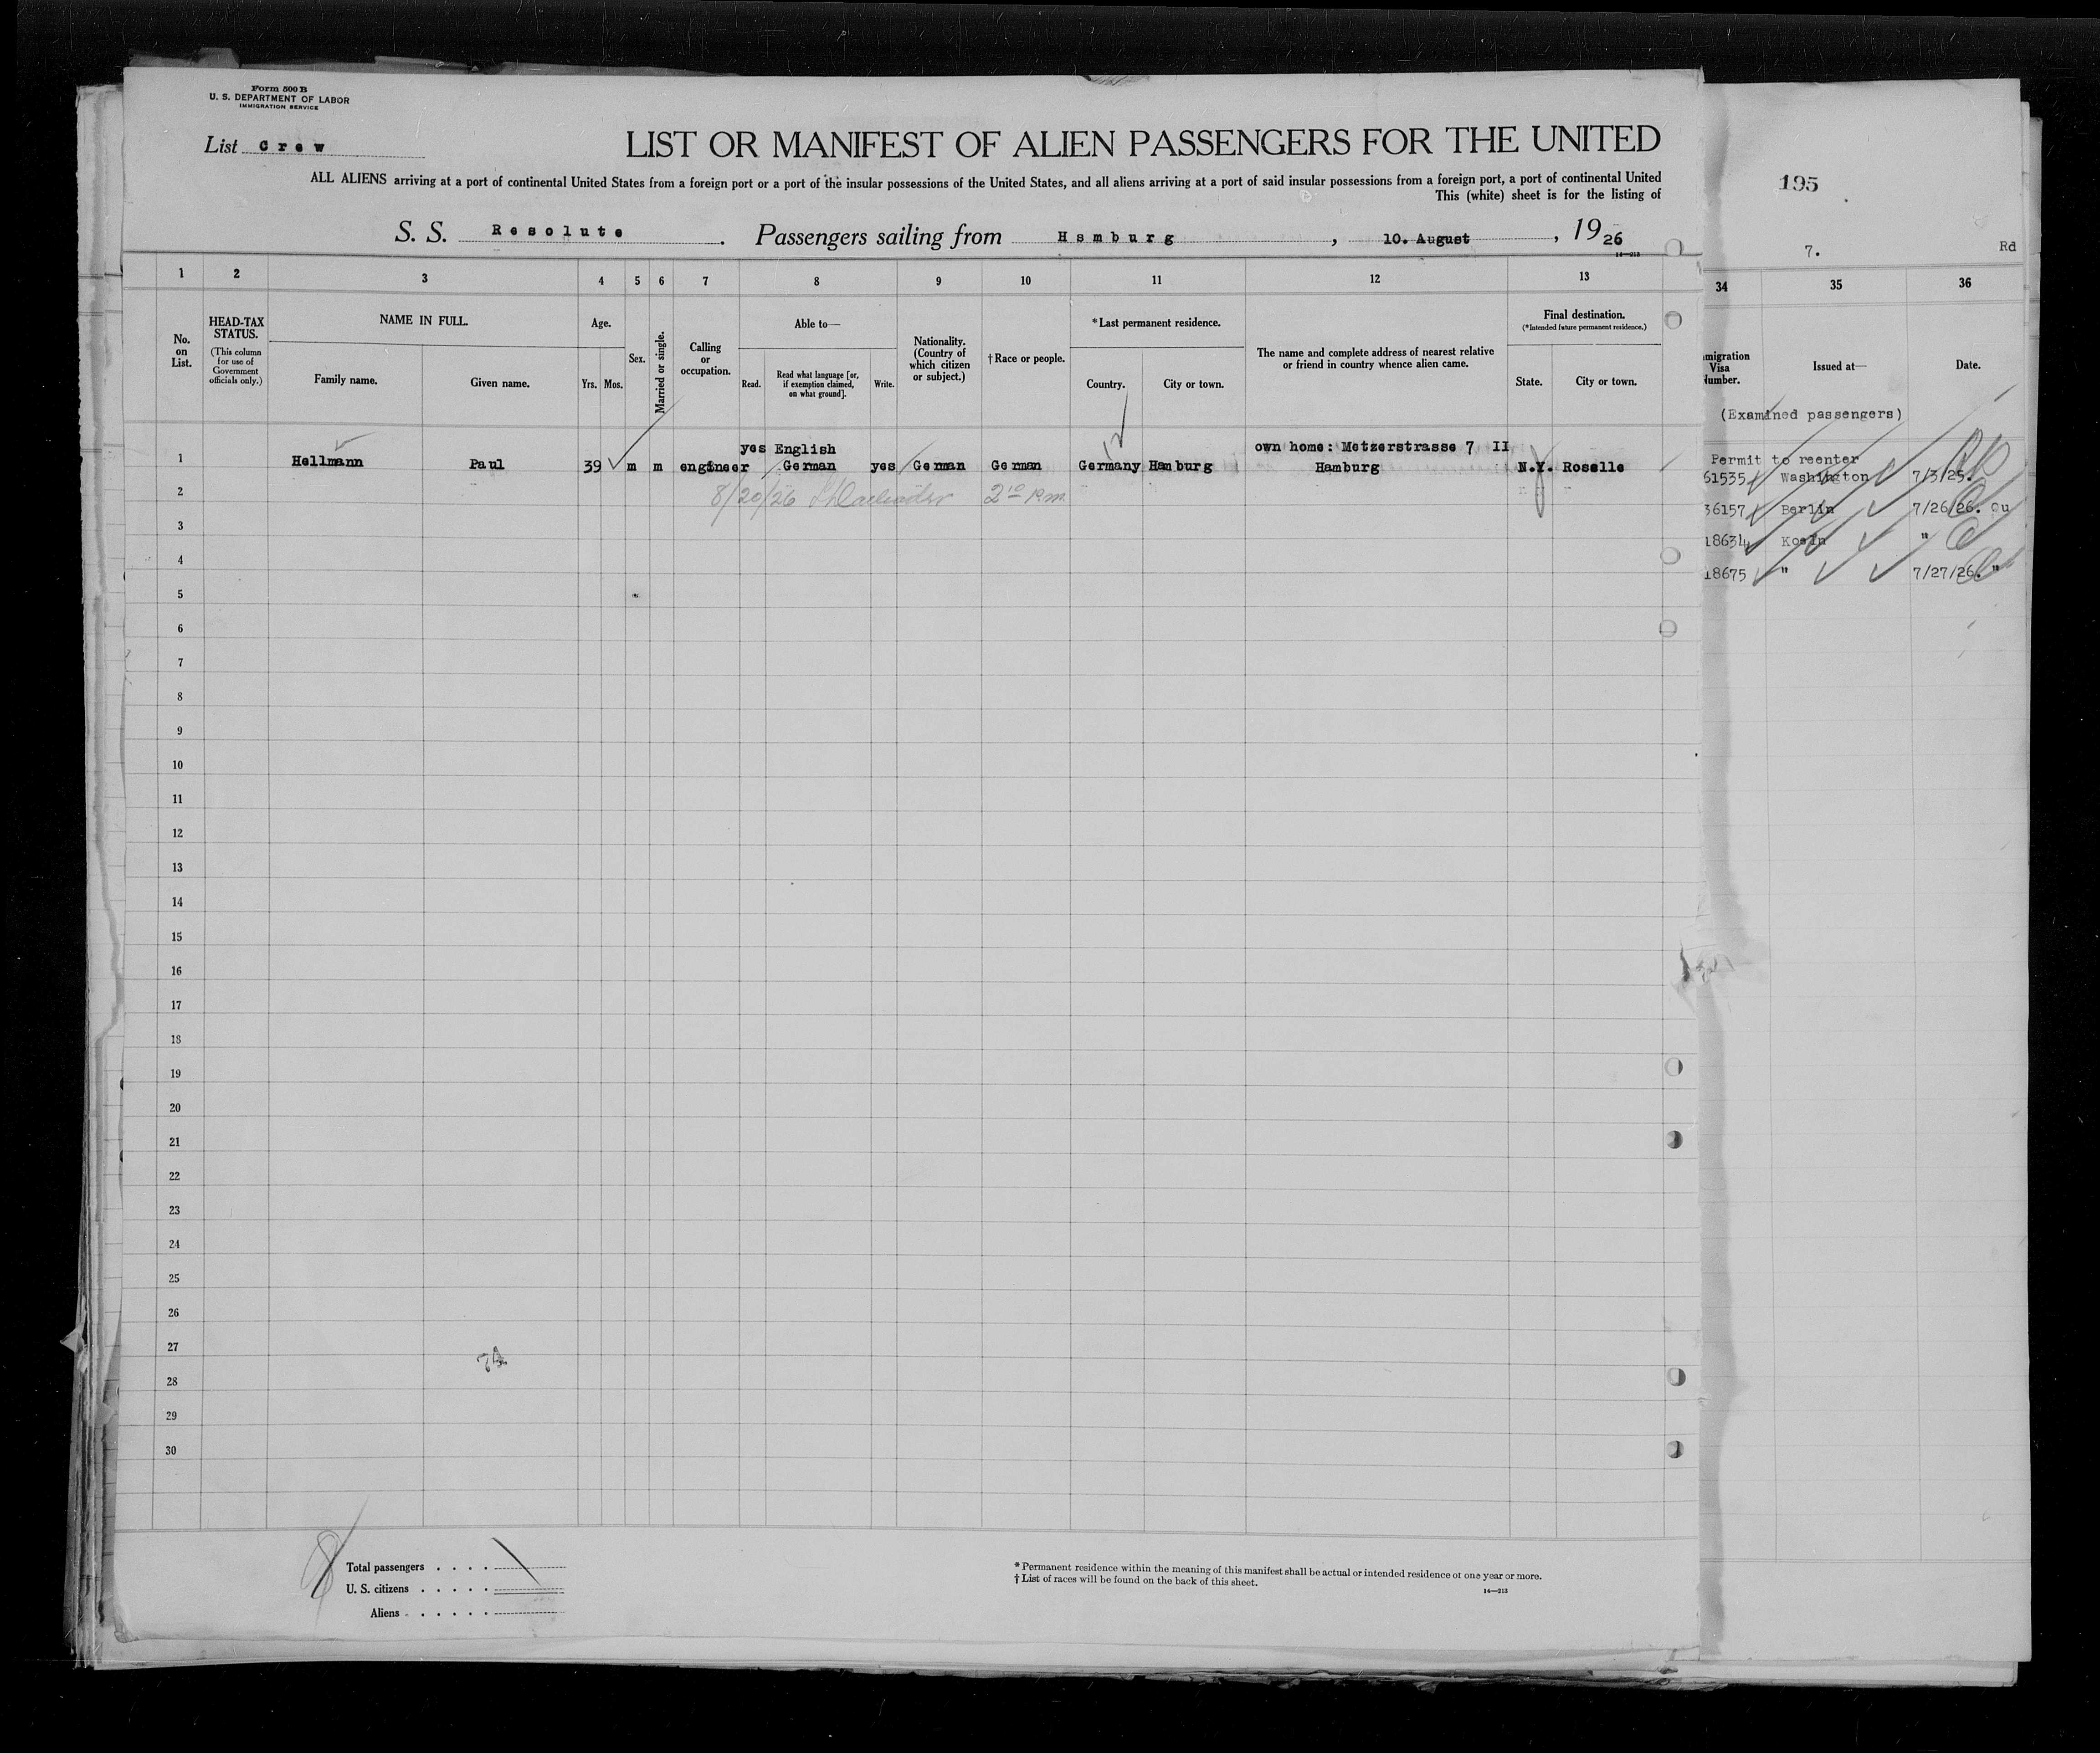 Form 500 B
U. S. DEPARTMENT OF LABOR
IMMIGRATION SERVICE
List Crew
LIST OR MANIFEST OF ALIEN PASSENGERS FOR THE UNITED
ALL ALIENS arriving at a port of continental United States from a foreign port or a port of the insular possessions of the United States, and all aliens arriving at a port of said insular possessions from a foreign port, a port of continental United
This (white) sheet is for the listing of
S. S. Resolute. Passengers sailing from Hamburg, 10. August, 1926
14—213
1 2 3 4 5 6 7 8 9 10 11 12 13
No. on List.
HEAD-TAX STATUS.
(This column for use of Government officials only.)
NAME IN FULL.
Family name.
Given name.
Age.
Yrs. Mos.
Sex.
Married or single.
Calling or occupation.
Able to—
Read.
Read what language [or, if exemption claimed, on what ground].
Write.
Nationality. (Country of which citizen or subject.)
† Race or people.
* Last permanent residence.
Country.
City or town.
The name and complete address of nearest relative or friend in country whence alien came.
Final destination.
(* Intended future permanent residence.)
State.
City or town.
yes English own home: Metzerstrasse 7 II
1 Hellmann Paul 39 m m engineer German yes German German Germany Hamburg Hamburg N.Y. Roselle
8/20/26
2
3
4
5
6
7
8
9
10
11
12
13
14
15
16
17
18
19
20
21
22
23
24
25
26
27
28
29
30
Total passengers
U. S. citizens
Aliens
* Permanent residence within the meaning of this manifest shall be actual or intended residence of one year or more.
† List of races will be found on the back of this sheet.
14—213
195
7. Rd
34 35 36
migration Visa Number.
Issued at—
Date.
(Examined passengers)
Permit to reenter
61535 Washington 7/3/25.
36157 Berlin 7/26/26. Qu
18634 Koeln "
18675 " 7/27/26. "